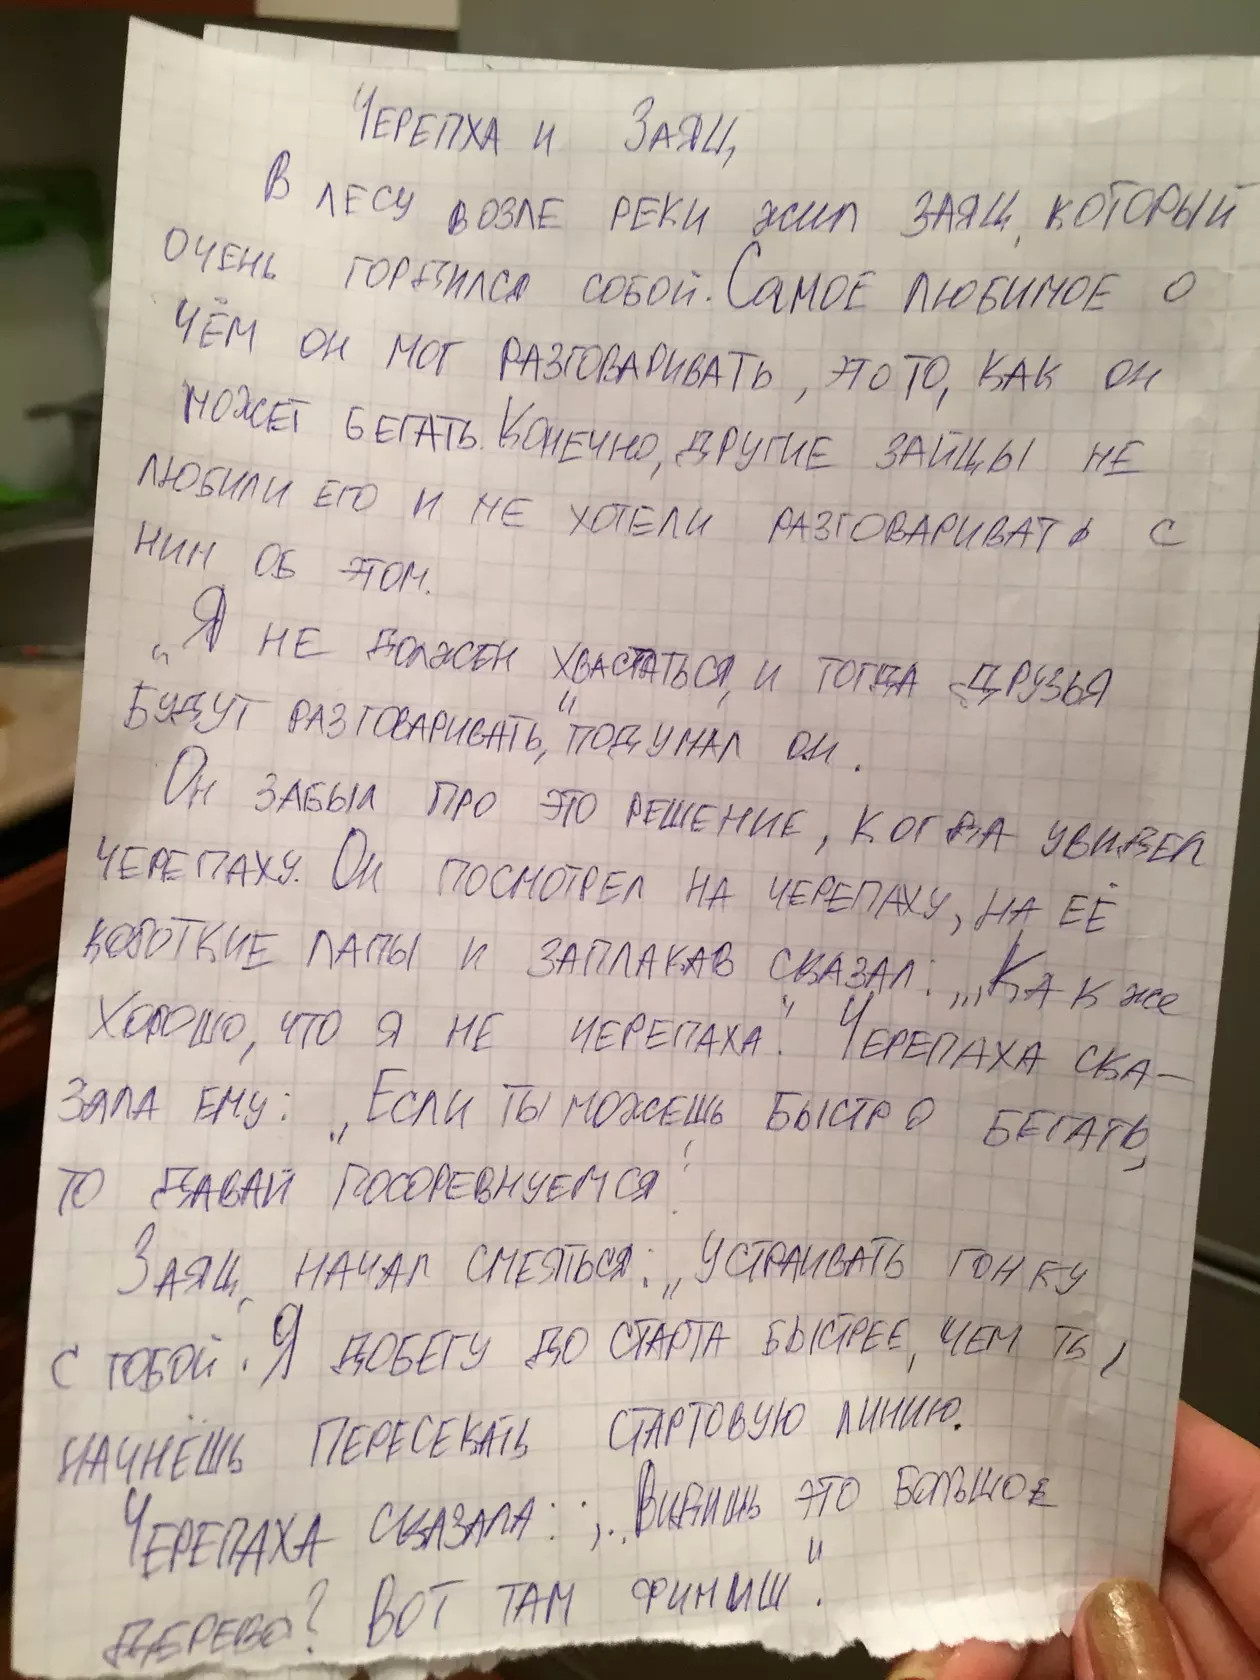 Черепха и Заяц
В лесу возле реки жил заяц, который
очень гордился собой. Самое любимое о
чём он мог разговаривать, это то, как он
может бегать. Конечно, другие зайцы не
любили его и не хотели разговаривать с
ним об этом.
„Я не должен хвастаться, и тогда друзья
будут разговаривать," подумал он.
Он забыл про это решение, когда увидел
черепаху. Он посмотрел на черепаху, на её
короткие лапы и заплакав сказал: „Как же
хорошо, что я не черепаха". Черепаха ска-
зала ему: „Если ты можешь быстро бегать,
то давай посоревнуемся!
Заяц начал смеяться: „устраивать гонку
с тобой. Я добегу до старта быстрее, чем ты,
начнёшь пересекать стартовую линию.
Черепаха сказала: „Видишь это большое
дерево? Вот там финиш".